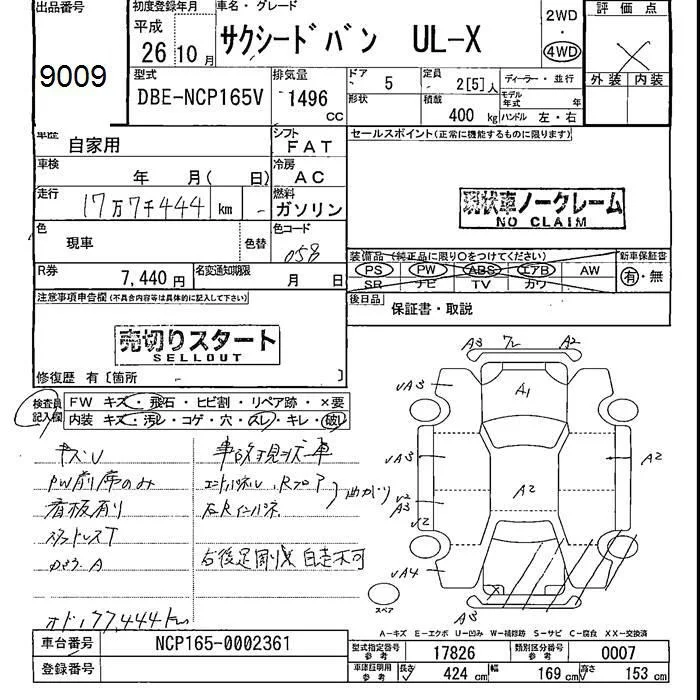 出品番号 初度登録年月 車名・グレード 2WD・4WD 評価点
9009 平成 26年10月 サクシードバン UL-X ×
型式 排気量 ドア 5 定員 2[5]人 ディーラー・並行 外装 内装
DBE-NCP165V 1496 cc 形状 積載 400 kg モデル年式 年 ハンドル 左・右
車歴 自家用 シフト FAT セールスポイント(正常に機能するものに限ります)
車検 年 月( 日) 冷房 AC
走行 17万7千444 km 燃料 ガソリン
現状車ノークレーム
NO CLAIM
色 現車 色替 色コード 058
装備品(純正品に限り○をつけてください) 新車保証書
PS PW ABS エアB AW 有・無
SR ナビ TV カワ
R券 7,440円 名変通知期限 月 日
後日品 保証書・取説
注意事項申告欄(不具合内容等は具体的に記入して下さい)
売切りスタート
SELLOUT
修復歴 有〔箇所 〕
検査員記入欄 FW キズ・飛石・ヒビ割・リペア跡・×要
内装 キズ・汚レ・コゲ・穴・スレ・キレ・破レ
キズU 事故現状車
PW前席のみ
看板有り
右後足廻り× 自走不可
オド177,444km
曲がり
A3 フレ A2
√A3 A1
√A3 A2 A2
√2
A3
√2
√A4
A3
スペア
A-キズ E-エクボ U-凹み W-補修跡 S-サビ C-腐食 XX-交換済
車台番号 NCP165-0002361 型式指定番号 参考 17826 類別区分番号 参考 0007
登録番号 車庫証明用 参考 長さ 424 cm 幅 169 cm 高さ 153 cm